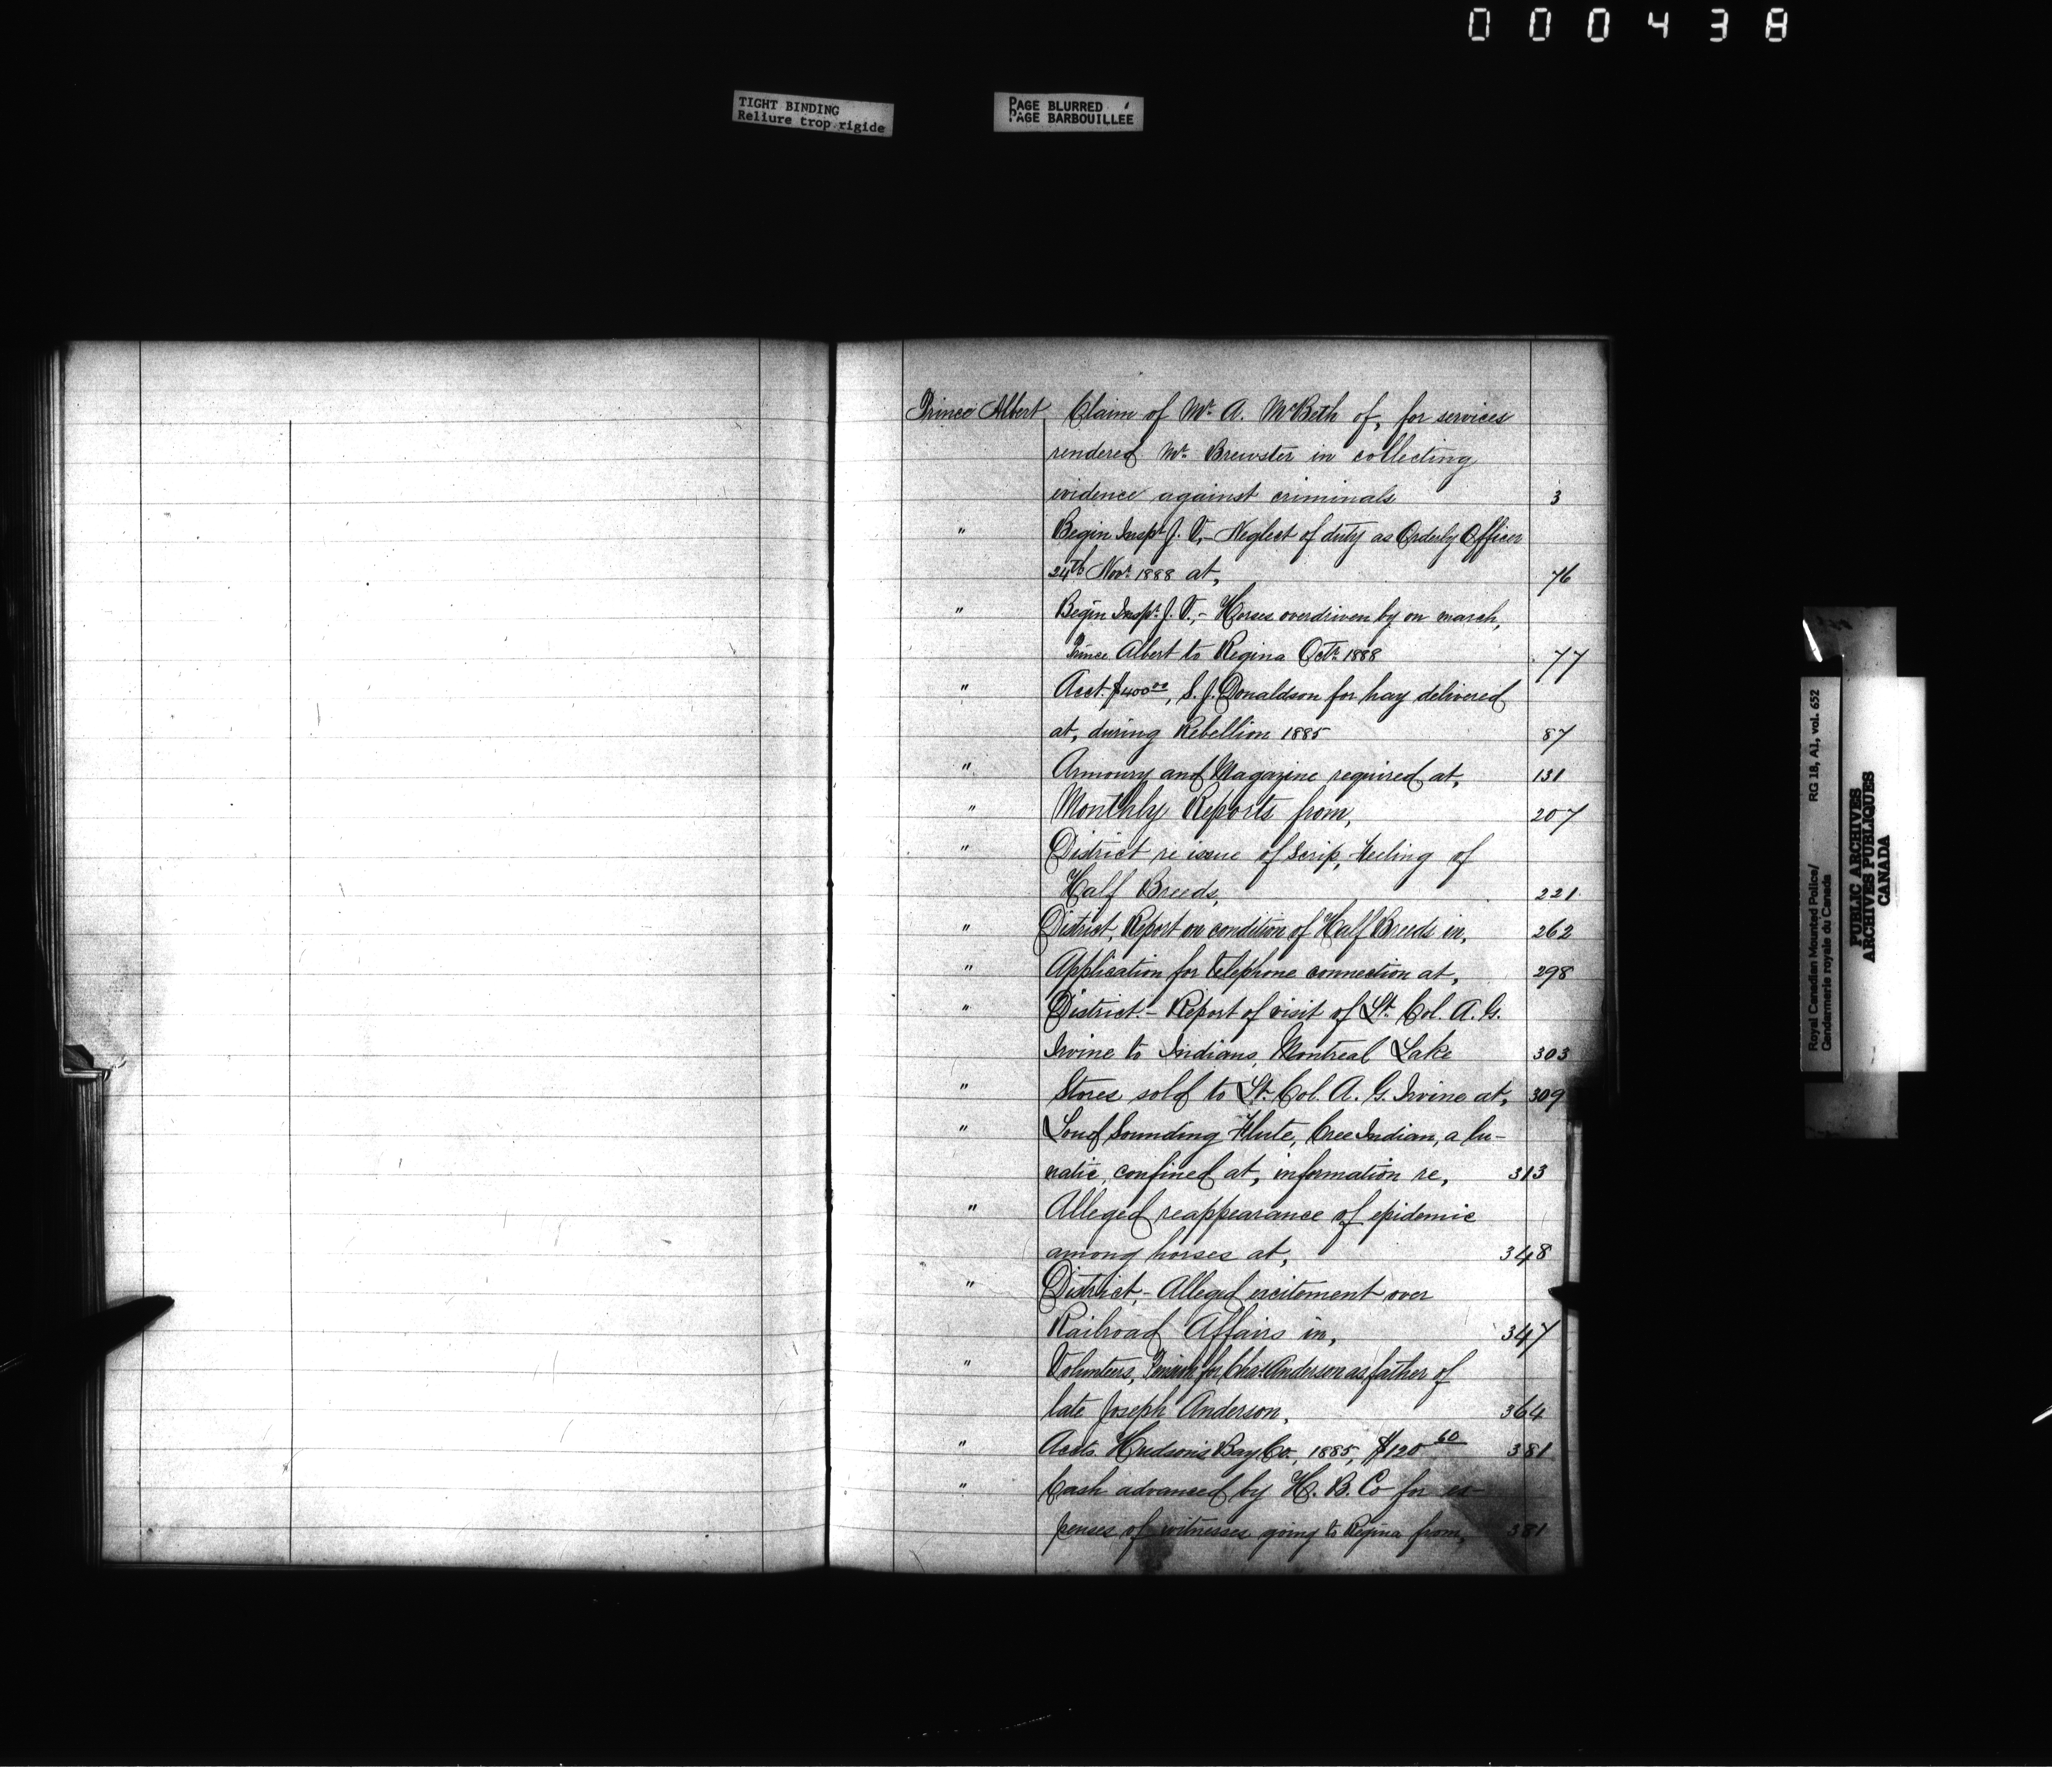 000438
TIGHT BINDING
Reliure trop rigide
PAGE BLURRED
PAGE BARBOUILLÉE
Prince Albert Claim of Mr. A. McBeth of, for services
rendered Mr. Brewster in collecting
evidence against criminals 3
" Begin Inspr. J. V. – Neglect of duty as Orderly Officer
24th Novr. 1888 at, 76
" Begin Inspr. J. V., – Horses overdriven by on march,
Prince Albert to Regina Octr. 1888 77
" Acct. $400.00, S. J. Donaldson for hay delivered
at, during Rebellion 1885 87
" Armoury and Magazine required at, 131
" Monthly Reports from, 207
" District re issue of Scrip, Feeling of
Half Breeds, 221
" District, Report on condition of Half Breeds in, 262
" Application for telephone connection at, 298
" District. – Report of visit of Lt. Col. A. G.
Irvine to Indians, Montreal Lake 303
" Stores sold to Lt. Col. A. G. Irvine at, 309
" Loud Sounding Flute, Cree Indian, a lu-
natic, confined at, information re, 313
" Alleged reappearance of epidemic
among horses at, 348
" District, – Alleged excitement over
Railroad Affairs in, 347
" Volunteers, Pension for Chas. Anderson as father of
late Joseph Anderson, 364
" Accts. Hudson's Bay Co., 1885, $120.60 381
" Cash advanced by H. B. Co for ex-
penses of witnesses going to Regina from, 381
Royal Canadian Mounted Police/ RG 18, A1, vol. 652
Gendarmerie royale du Canada
PUBLIC ARCHIVES
ARCHIVES PUBLIQUES
CANADA